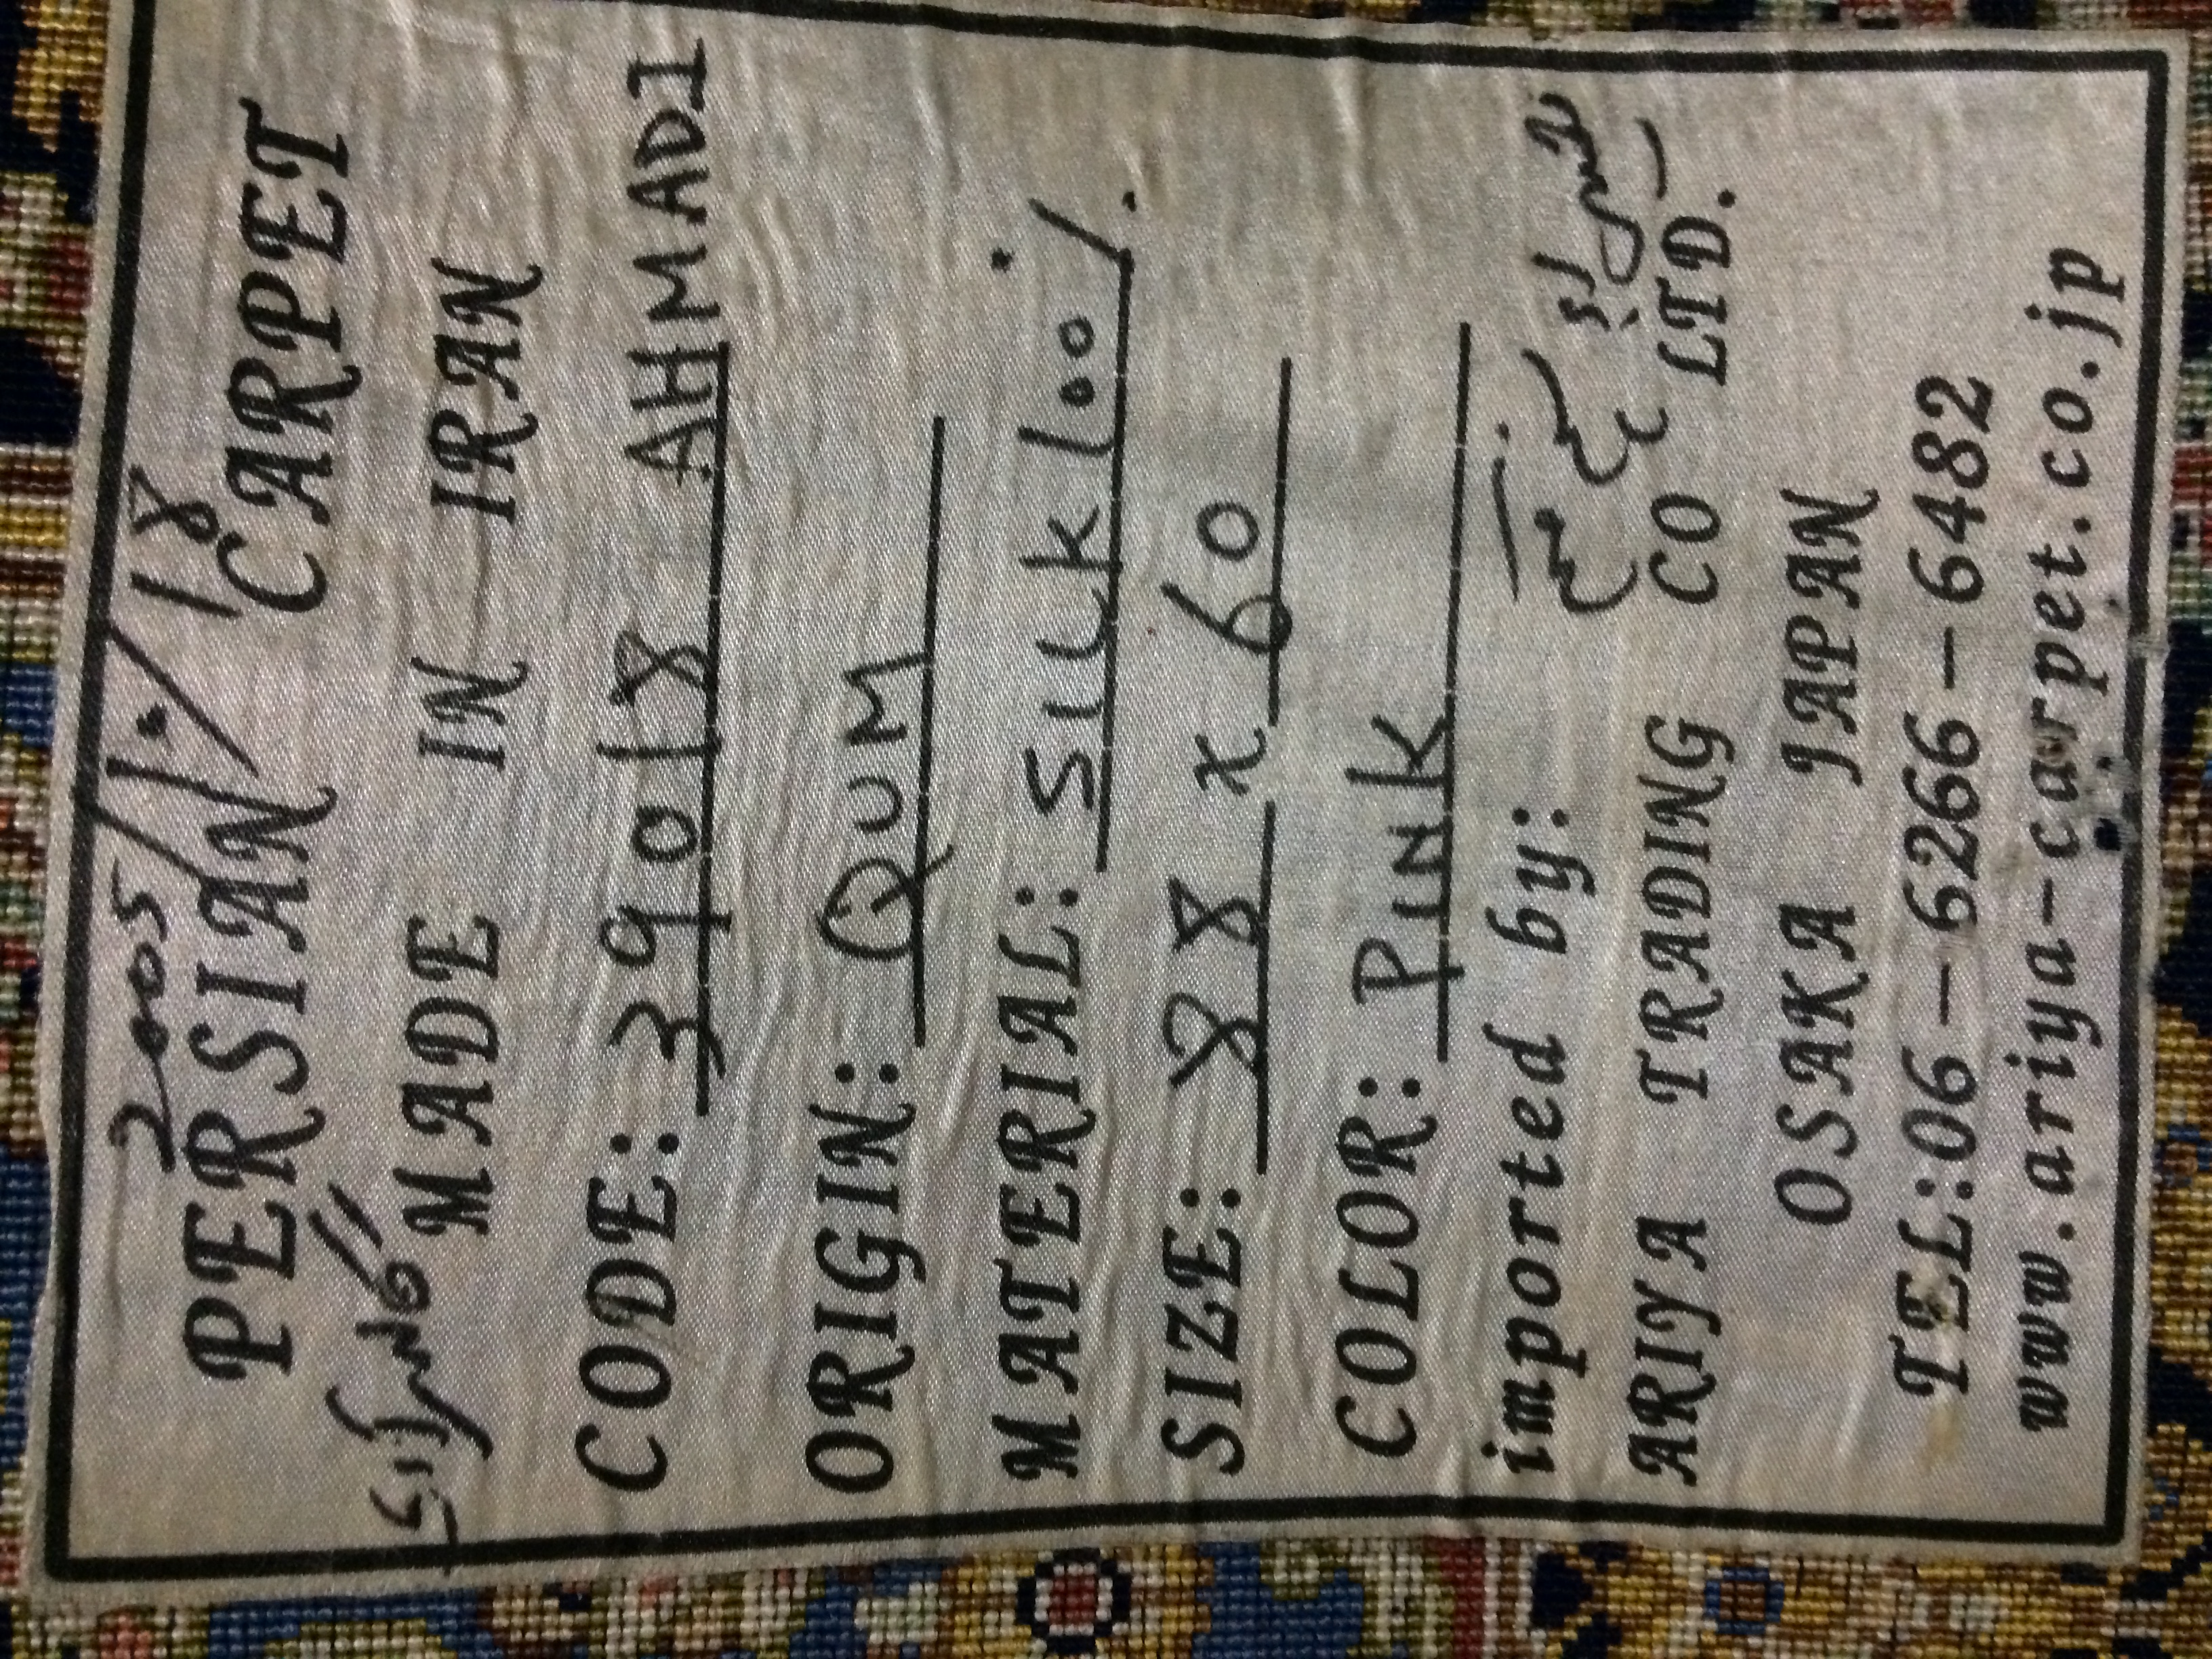 2005/10/18
PERSIAN CARPET
MADE IN IRAN
CODE: 39018 AHMADI
ORIGIN: QUM
MATERIAL: SILK 100%
SIZE: 88 x 60
COLOR: PINK
imported by:
ARIYA TRADING CO LTD.
OSAKA JAPAN
TEL:06-6266-6482
www.ariya-carpet.co.jp